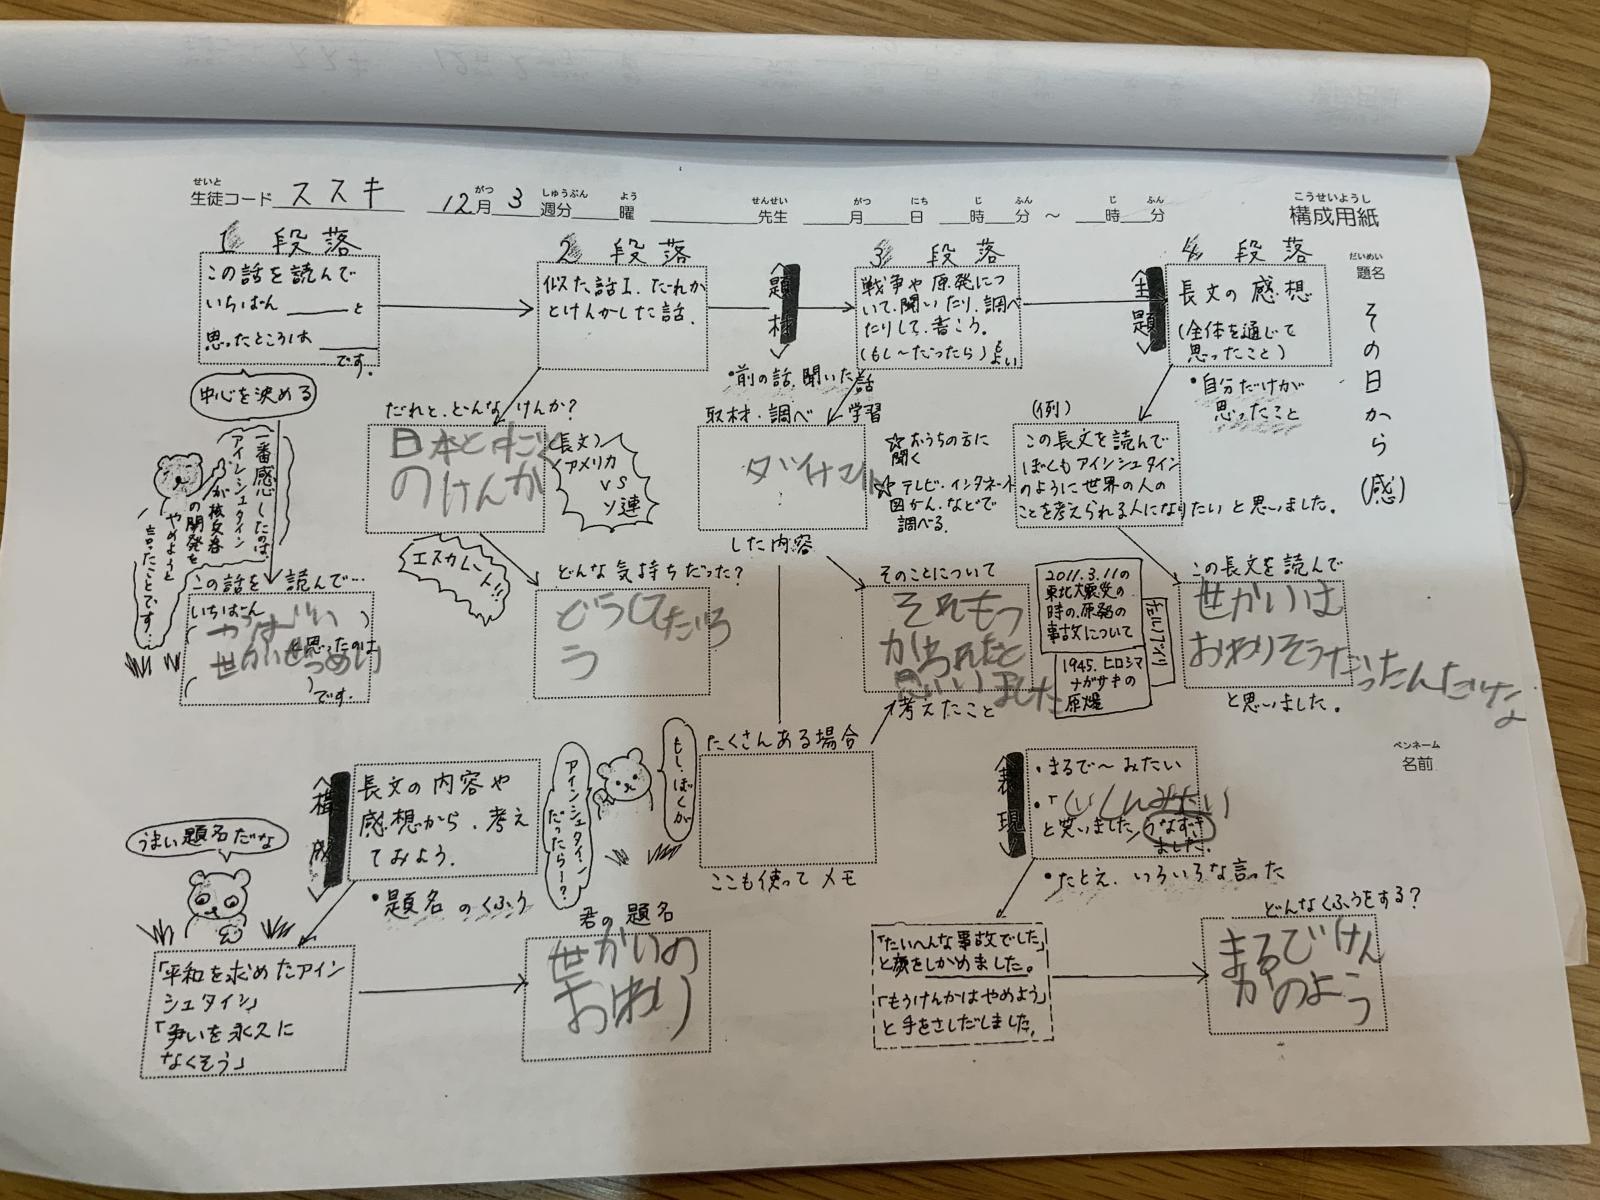 せいと
生徒コード ススキ
がつ しゅうぶん よう
12月 3週分 曜
せんせい
先生
がつ にち じ ふん じ ふん
月 日 時 分 ~ 時 分
こうせいようし
構成用紙
だいめい
題名
その日から(感)
1 段落
この話を読んで
いちばん と
思ったところは
です。
中心を決める
一番感心したのは、
アインシュタイン
が核兵器
の開発を
やめようと
言ったことです。
この話を読んで…
いちばん
やばい
と思ったのは
世かいせつめい
です。
2 段落
似た話1. だれか
とけんかした話.
だれと、どんなけんか?
のけんか
(長文)
アメリカ
VS
ソ連
エスカレート!!
どんな気持ちだった?
どうしてだろ
う
<題材>
・前の話、聞いた話
3 段落
戦争や原発につ
いて、聞いたり、調べ
たりして、書こう。
(もし~だったら)もよい
取材・調べ学習
☆おうちの方に
聞く
☆テレビ・インタネート
図かん、などで
調べる.
した内容
そのことについて
それもつ
かわれたと
思いました
考えたこと
2011.3.11の
東北大震災の
時の原発の
事故について
チェルノブイリ
1945.ヒロシマ
ナガサキの
原爆
たくさんある場合
ここも使ってメモ
<主題>
・自分だけが
思ったこと
4 段落
長文の感想
(全体を通じて
思ったこと)
(例)
この長文を読んで
ぼくもアインシュタイン
のように世界の人の
ことを考えられる人になりたいと思いました。
この長文を読んで
世かいは
おわりそうだったんだけな
と思いました。
ペンネーム
名前
<構成>
長文の内容や
感想から、考え
てみよう.
・題名のくふう
うまい題名だな
「平和を求めたアイン
シュタイン」
「争いを永久に
なくそう」
君の題名
世かいの
おわり
アインシュタイン
だったら…?
もし、ぼくが
<表現>
・まるで~みたい
・「
と笑いました
うなずき
ました.
・たとえ、いろいろな言った
「たいへんな事故でした」
と顔をしかめました。
「もうけんかはやめよう」
と手をさしだしました.
どんなくふうをする?
まるでけん
かのよう